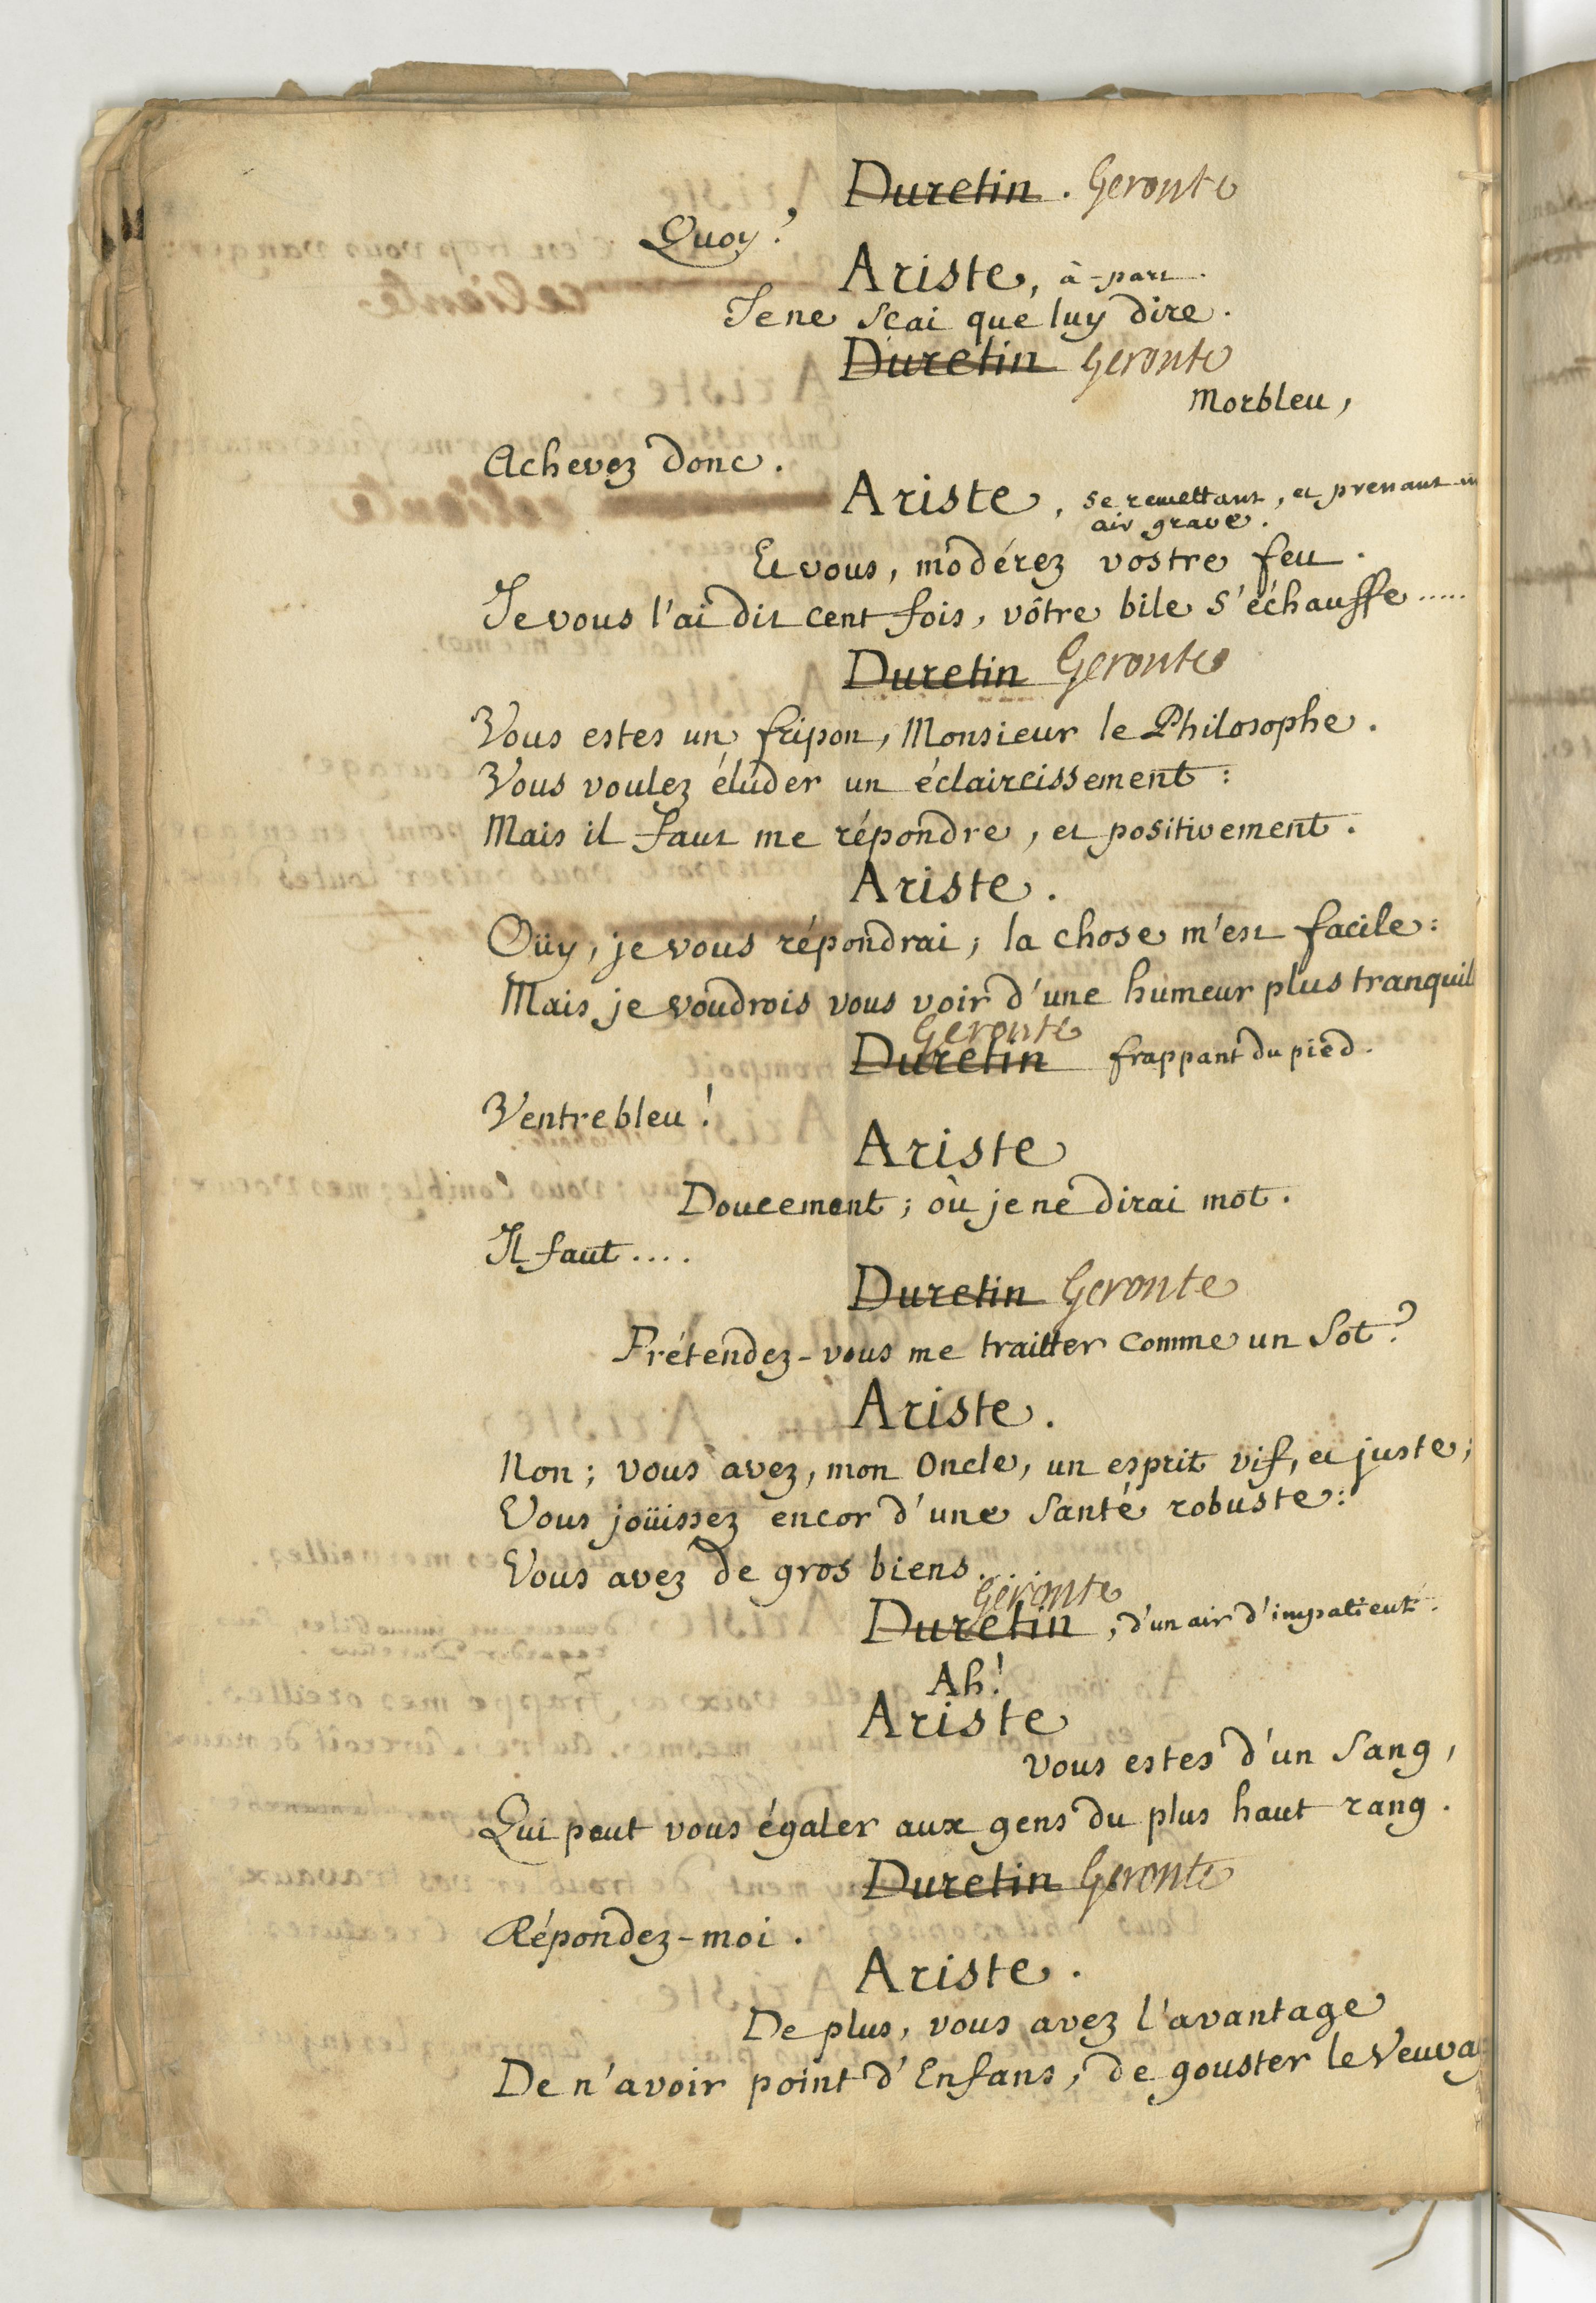 Duretin. Geronte
Quoy?
Ariste, à-part.
Je ne scai que luy dire.
Duretin Geronte
Morbleu,
Achevez donc.
Ariste, se remettant, et prenant
air grave.
Et vous, modérez vostre feu.
Je vous l'ai dit cent fois, vôtre bile s'échauffe.....
Duretin Geronte
Vous estes un fripon, Monsieur le Philosophe.
Vous voulez éluder un éclaircissement:
Mais il faut me répondre, et positivement.
Ariste.
Oüy, je vous répondrai; la chose m'est facile:
Mais je voudrois vous voir d'une humeur plus tranquil
Geronte
Duretin frappant du pied.
Ventrebleu!
Ariste
Doucement; où je ne dirai mot.
Il faut....
Duretin Geronte
Prétendez-vous me traitter comme un sot?
Ariste.
Non; vous avez, mon Oncle, un esprit vif, et juste;
Vous joüissez encor d'une santé robuste:
Vous avez de gros biens...
Geronte
Duretin, d'un air d'impatient.
Ah!
Ariste
vous estes d'un sang,
Qui peut vous égaler aux gens du plus haut rang.
Duretin Geronte
Répondez-moi.
Ariste.
De plus, vous avez l'avantage
De n'avoir point d'Enfans, de gouster le Veuvag